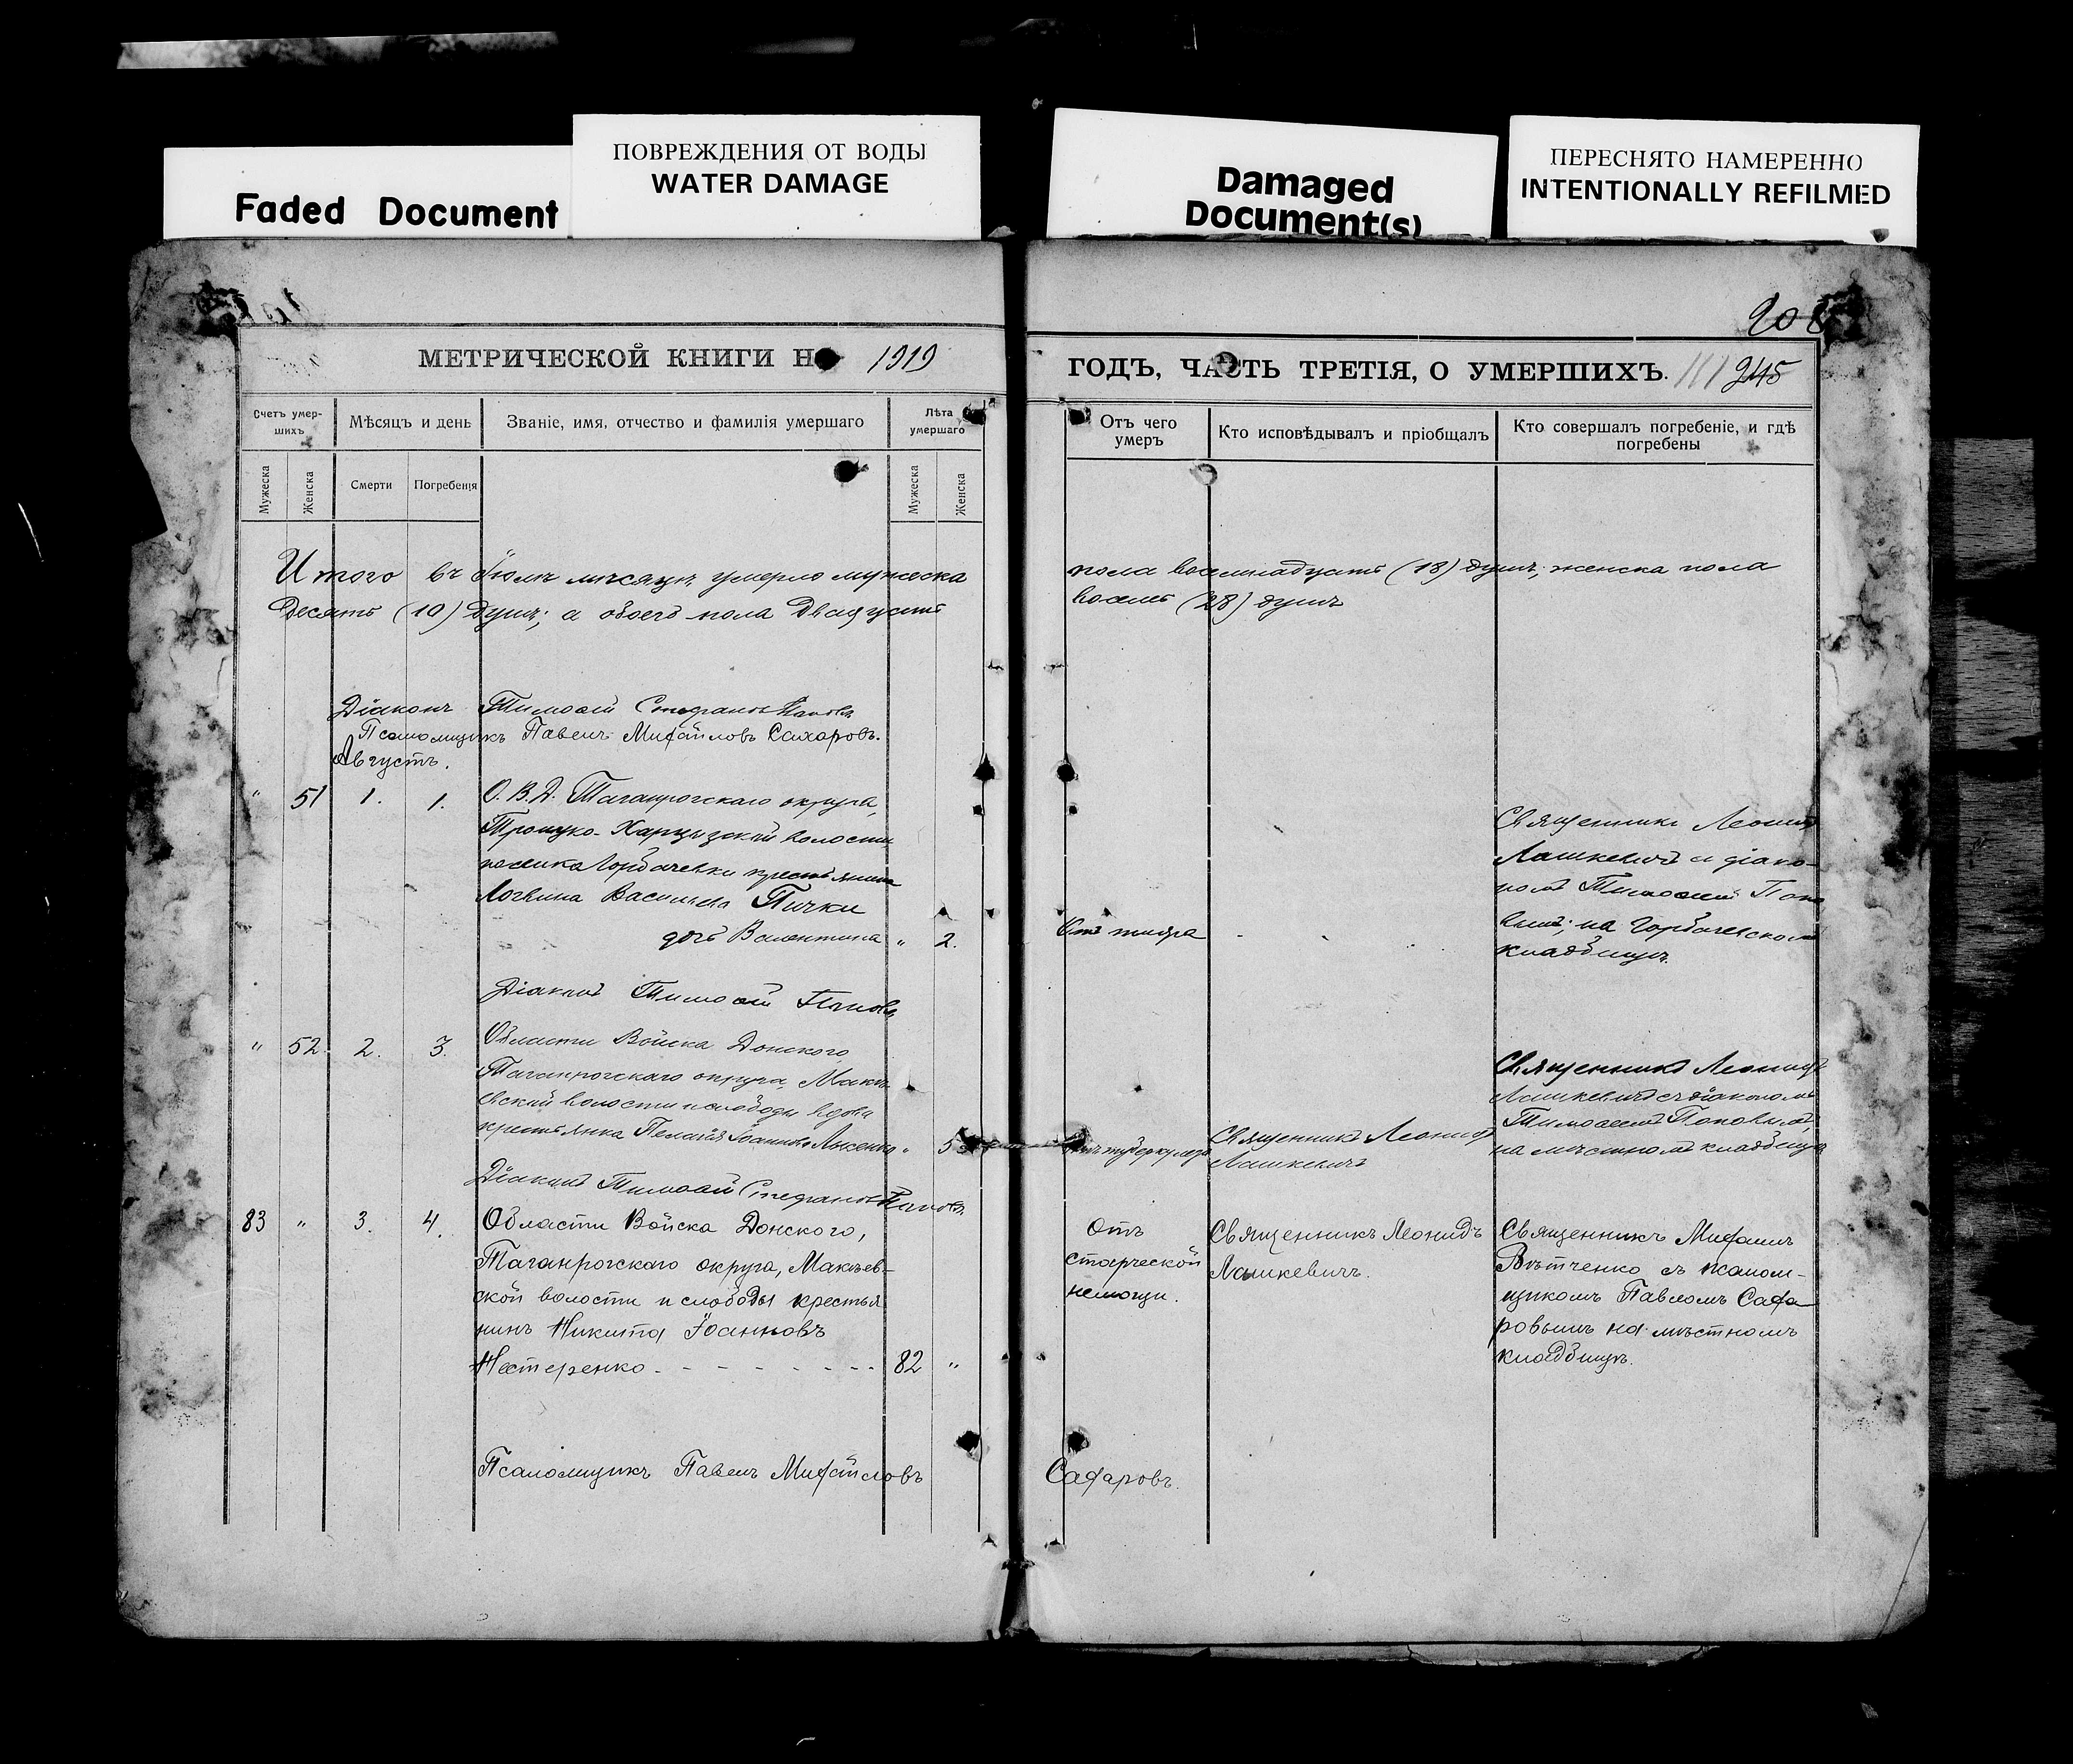 ПОВРЕЖДЕНИЯ ОТ ВОДЫ
WATER DAMAGE
Faded Document
Damaged
Document(s)
ПЕРЕСНЯТО НАМЕРЕННО
INTENTIONALLY REFILMED
208
МЕТРИЧЕСКОЙ КНИГИ Н 1919
ГОДЪ, ЧАСТЬ ТРЕТІЯ, О УМЕРШИХЪ. 245
Счетъ умер-
шихъ
Мѣсяцъ и день
Званіе, имя, отчество и фамилія умершаго
Лѣта
умершаго
Отъ чего
умеръ
Кто исповѣдывалъ и пріобщалъ
Кто совершалъ погребеніе, и гдѣ
погребены
Мужеска
Женска
Смерти
Погребенія
Мужеска
Женска
Итого въ Іюлѣ мѣсяцѣ умерло мужеска
пола восемнадцать (18) душъ; женска пола
Десять (10) душъ; а обоего пола Двадцать
восемь (28) душъ
Діаконъ Тимоѳей Стефановъ Поповъ
Псаломщикъ Павелъ Михайловъ Сахаровъ.
Августъ.
" 51 1. 1.
О. В. Д. Таганрогскаго округа,
Троицко-Харцызской волости
поселка Горбачевки крестьянина
Логвина Васильева Пички
дочь Валентина " 2.
Отъ тифа
Священникъ Леонидъ
Лашкевичъ и діако-
номъ Тимоѳеемъ Попо
вымъ; на Горбачевскомъ
кладбищѣ.
Діаконъ Тимоѳей Поповъ
" 52. 2. 3.
Области Войска Донского
Таганрогскаго округа, Макѣ-
евской волости и слободы вдова
крестьянка Пелагія Іоаннова Лысенко " 5
туберкулеза
Священникъ Леонидъ
Лашкевичъ
Священникъ Леонидъ
Лашкевичъ съ діакономъ
Тимоѳеемъ Поповымъ,
на мѣстномъ кладбищѣ
Діаконъ Тимоѳей Стефановъ Поповъ.
83 " 3. 4.
Области Войска Донского,
Таганрогскаго округа, Макѣев-
ской волости и слободы крестья
нинъ Никита Іоанновъ
Нестеренко - - - - - - - - 82 "
Отъ
старческой
немощи.
Священникъ Леонидъ
Лашкевичъ.
Священникъ Михаилъ
Вѣтченко съ псалом-
щикомъ Павломъ Саха
ровымъ на мѣстномъ
кладбищѣ.
Псаломщикъ Павелъ Михайловъ Сахаровъ.